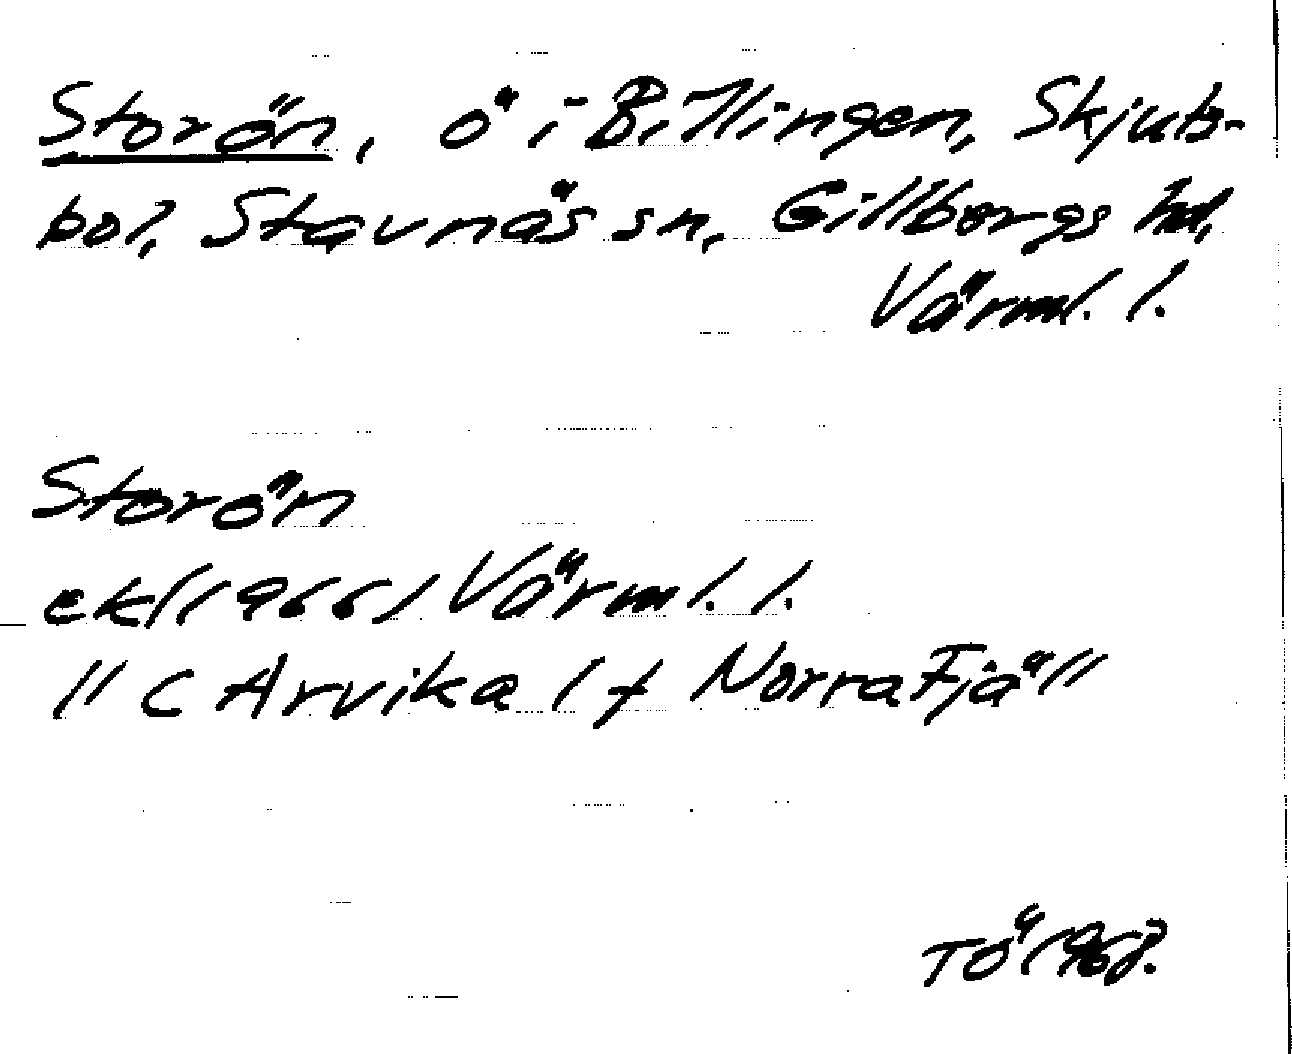 Storön, ö i Billingen, Skjuts-
bol, Stavnäs sn, Gillbergs hd,
Värml. l.
Storön
ek/(1966) Värml. l.
11 C Arvika / f Norra Fjäll
TÖ 1968.